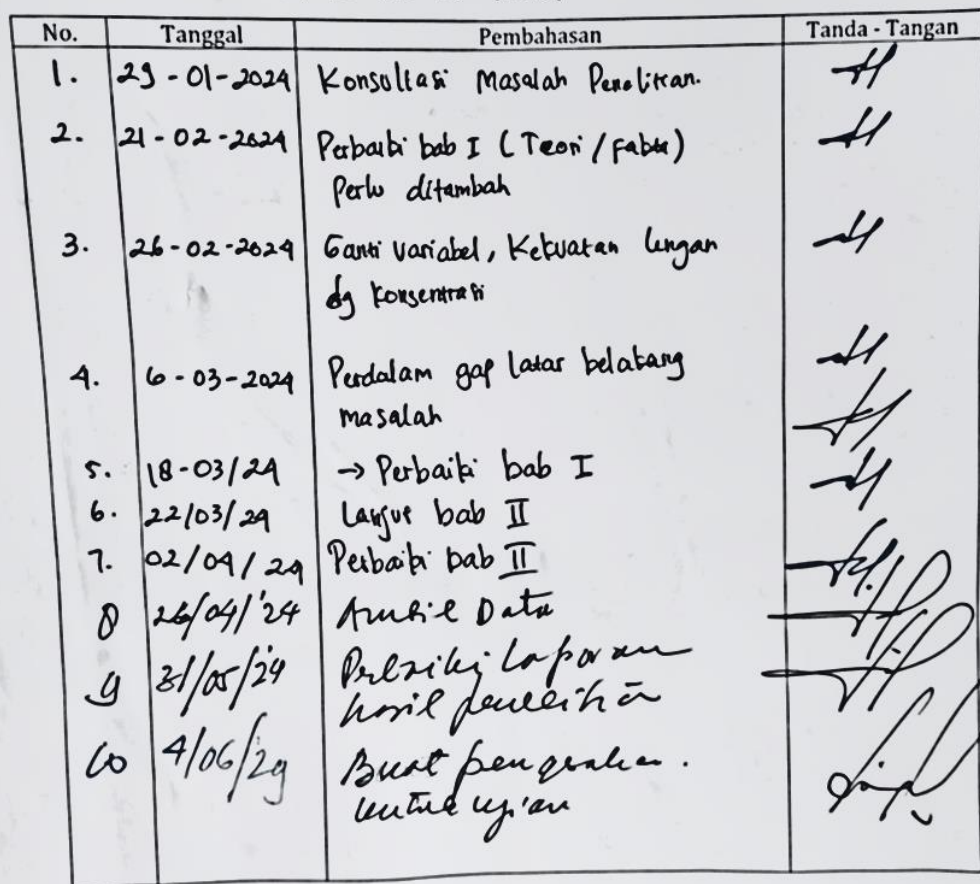 No. Tanggal Pembahasan Tanda - Tangan
1. 29-01-2024 Konsultasi Masalah Penelitian.
2. 21-02-2024 Perbaiki bab I (Teori/fakta)
Perlu ditambah
3. 26-02-2024 Ganti variabel, Kekuatan lengan
dg konsentrasi
4. 6-03-2024 Perdalam gap latar belakang
masalah
5. 18-03/24 → Perbaiki bab I
6. 22/03/24 Lanjut bab II
7. 02/04/24 Perbaiki bab II
8 26/04/'24 Ambil Data
9 31/05/'24 Perbaiki laporan
hasil penelitian
10 4/06/'24 Buat
untuk ujian